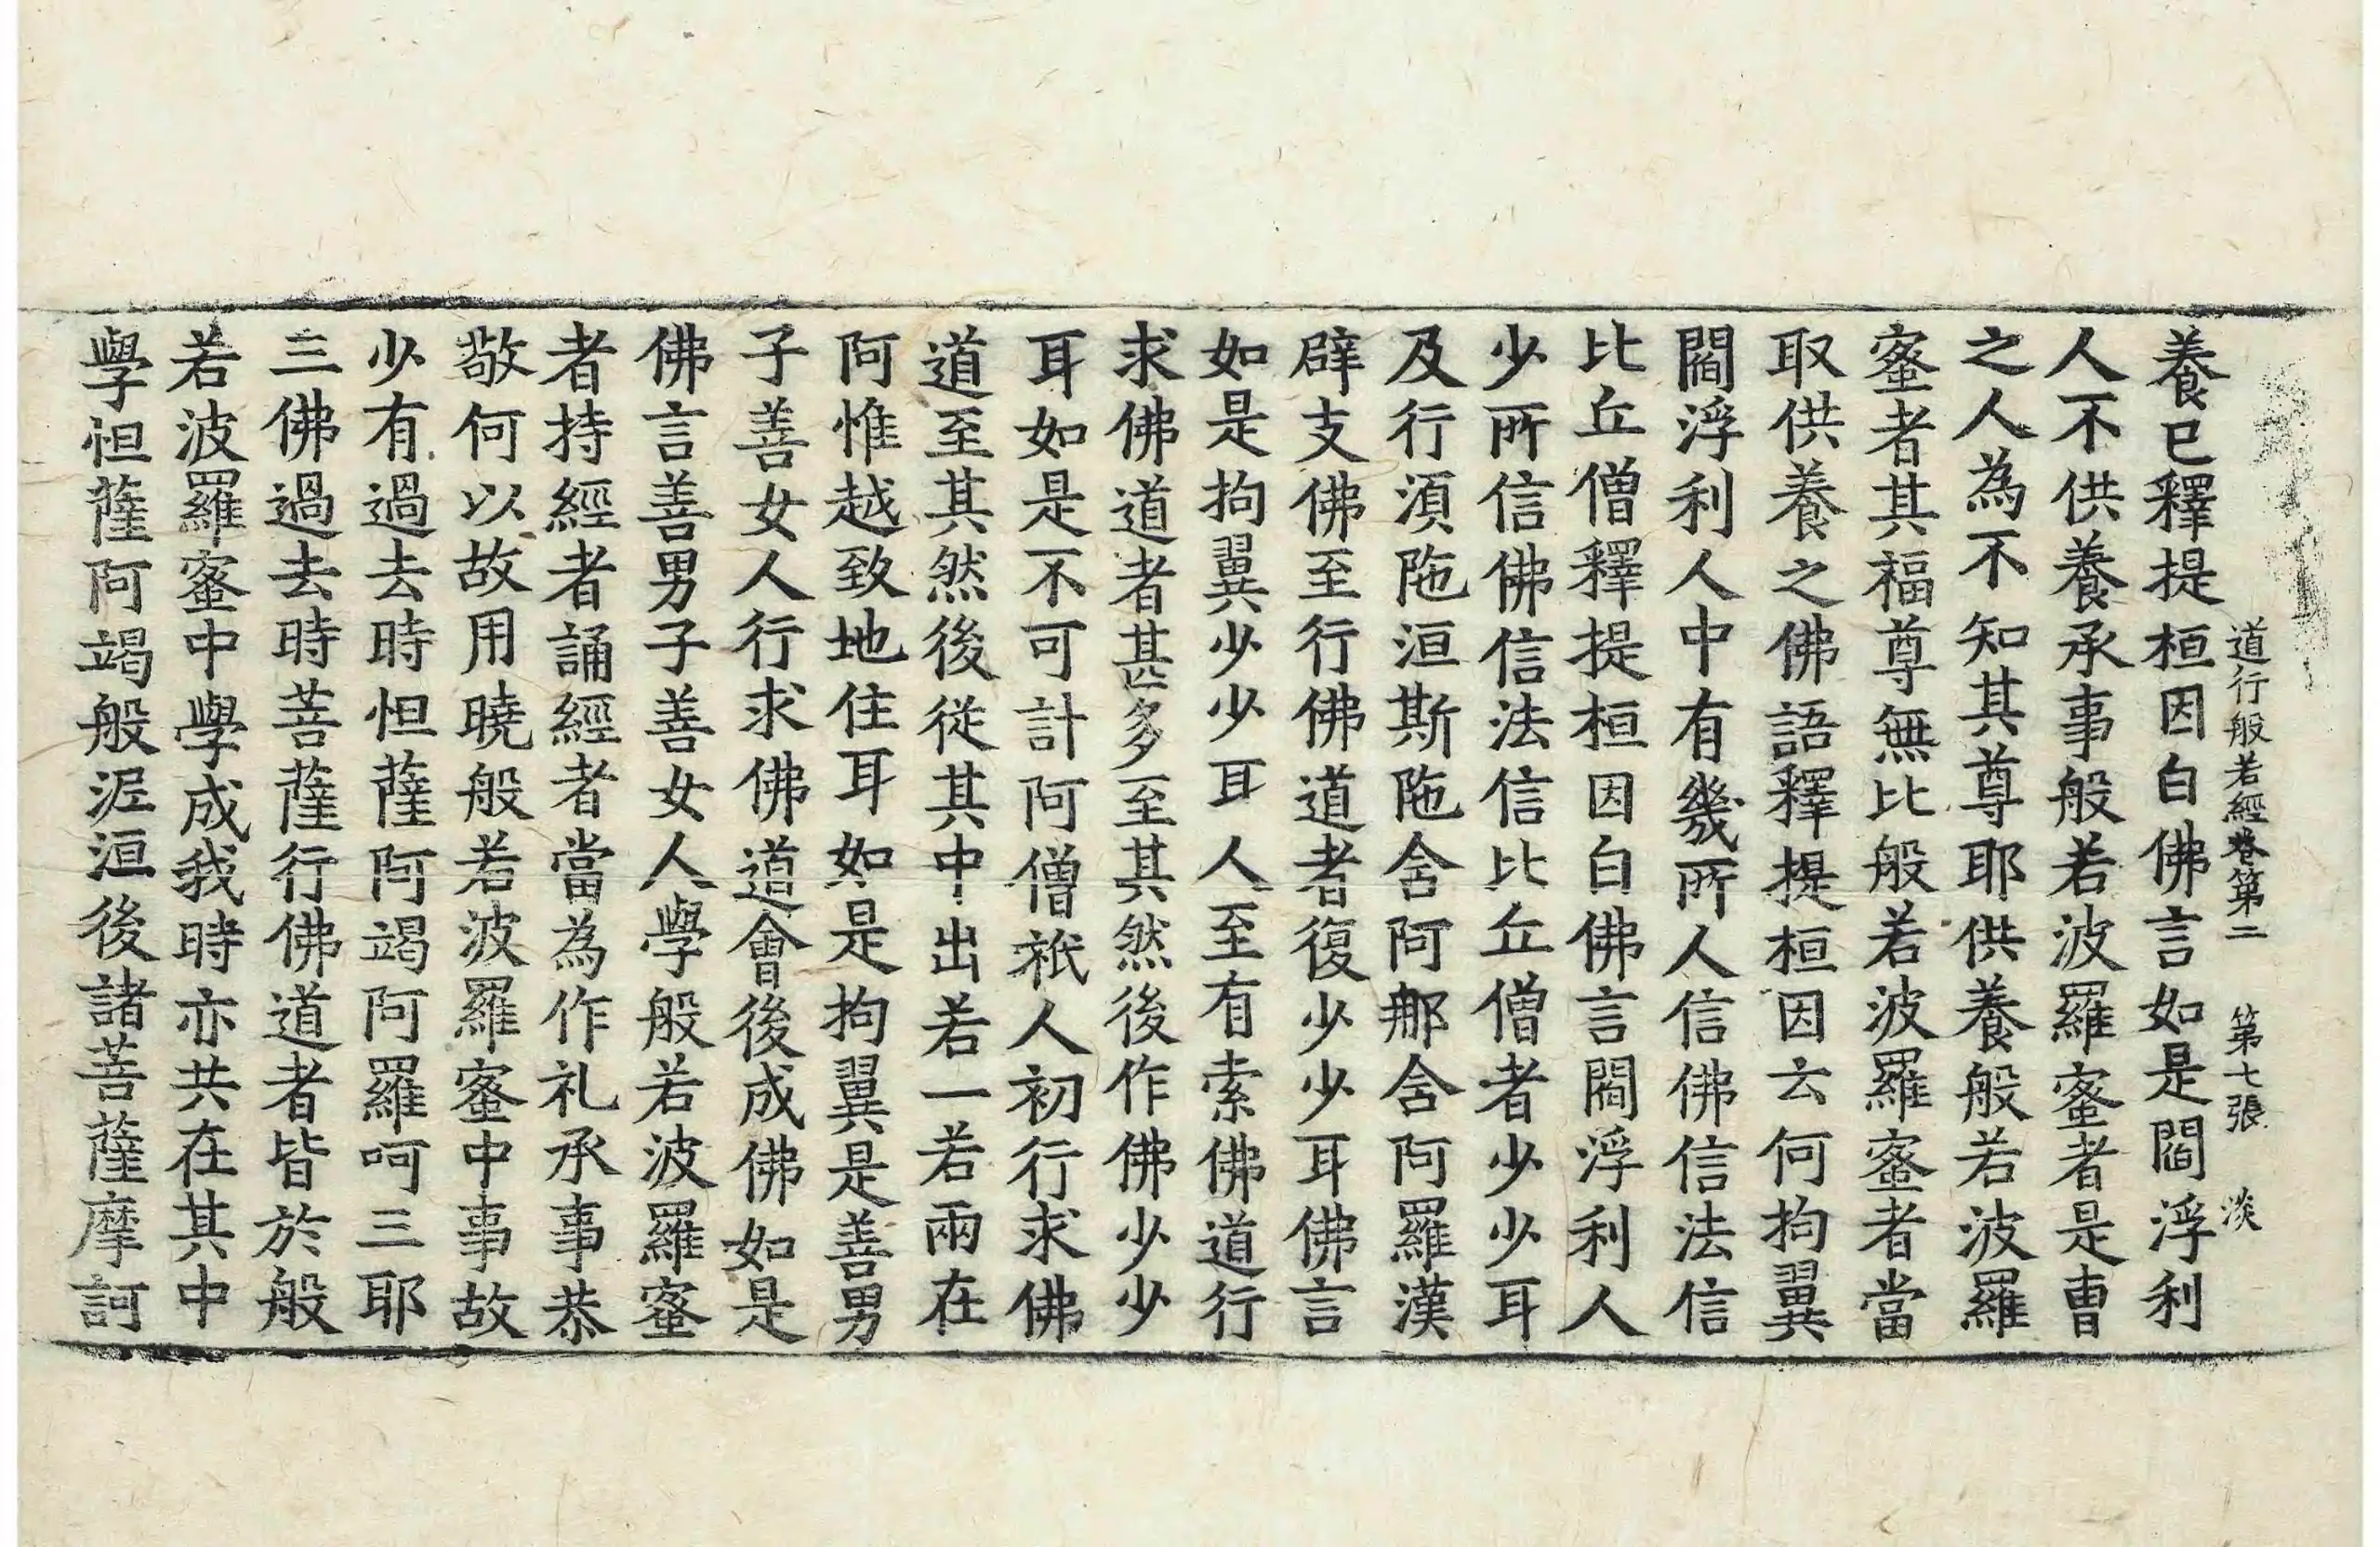 道行般若經卷第二 第七張 淡
養已釋提桓因白佛言如是閻浮利
人不供養承事般若波羅蜜者是曹
之人為不知其尊耶供養般若波羅
蜜者其福尊無比般若波羅蜜者當
取供養之佛語釋提桓因云何拘翼
閻浮利人中有幾所人信佛信法信
比丘僧釋提桓因白佛言閻浮利人
少所信佛信法信比丘僧者少少耳
及行須陁洹斯陁含阿那含阿羅漢
辟支佛至行佛道者復少少耳佛言
如是拘翼少少耳人至有索佛道行
求佛道者甚匹多至其然後作佛少少
耳如是不可計阿僧祇人初行求佛
道至其然後從其中出若一若兩在
阿惟越致地住耳如是拘翼是善男
子善女人行求佛道會後成佛如是
佛言善男子善女人學般若波羅蜜
者持經者誦經者當為作礼承事恭
敬何以故用曉般若波羅蜜中事故
少有過去時怛薩阿竭阿羅呵三耶
三佛過去時菩薩行佛道者皆於般
若波羅蜜中學成我時亦共在其中
學怛薩阿竭般泥洹後諸菩薩摩訶